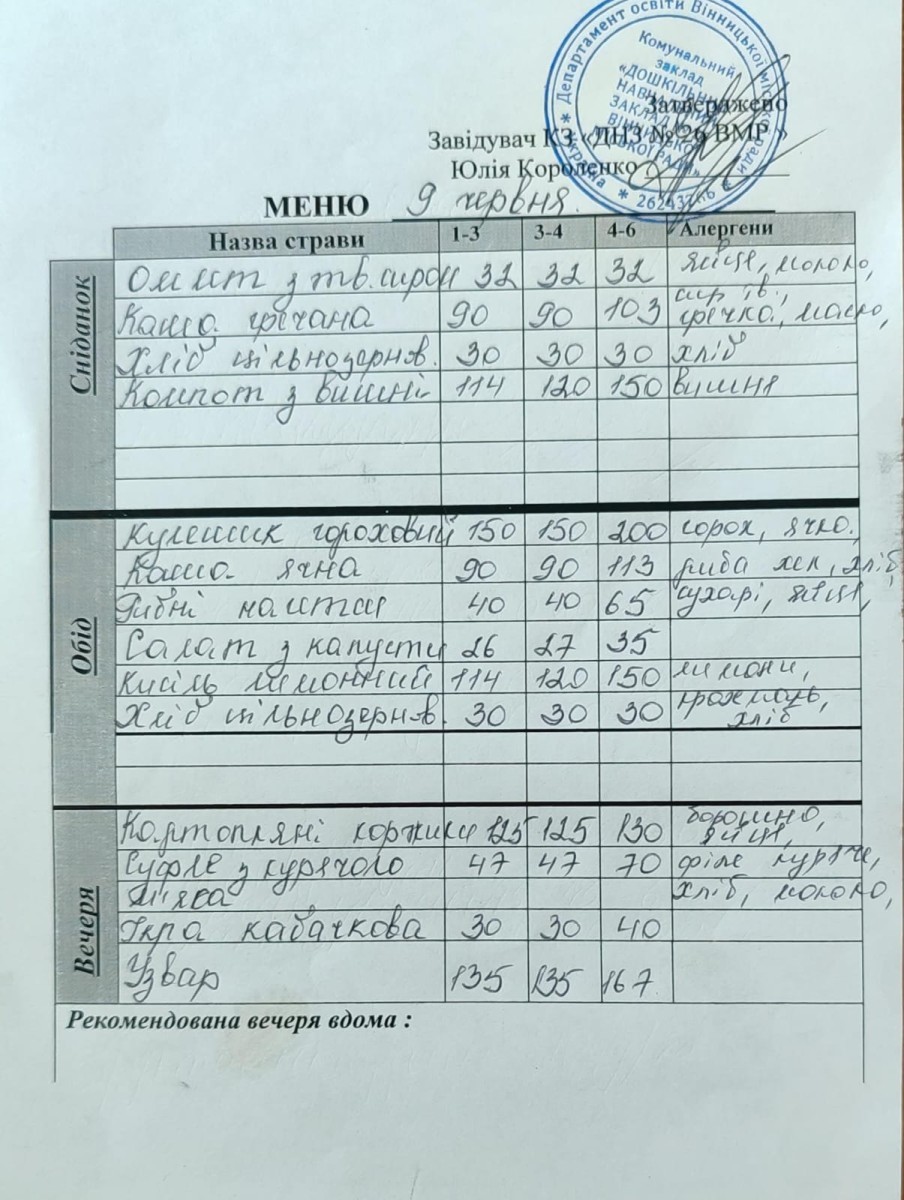 Департамент освіти Вінницької міської ради
Україна * 26243206 *
Комунальний
заклад
«ДОШКІЛЬНИЙ
НАВЧАЛЬНИЙ
ЗАКЛАД №26
ВІННИЦЬКОЇ
МІСЬКОЇ РАДИ»
Затверджено
Завідувач КЗ «ДНЗ № 26 ВМР »
Юлія Короленко
МЕНЮ 9 червня.
Назва страви 1-3 3-4 4-6 Алергени
Сніданок
Омлет з тв. сиром 32 32 32 яйце, молоко,
сир тв.,
Каша гречана 90 90 103 гречка, масло,
Хліб цільнозернов. 30 30 30 хліб
Компот з вишні 114 120 150 вишня
Обід
Кулешик гороховий 150 150 200 горох, ячко.,
Каша ячна 90 90 113 риба хек, хліб
Рибні 40 40 65 сухарі, яйця,
Салат з капусти 26 27 35
Кисіль лимонний 114 120 150 лимони,
крохмаль,
Хліб цільнозернов. 30 30 30 хліб
Вечеря
борошно,
Картопляні коржики 125 125 130 яйця,
Суфле з курячого 47 47 70 філе куряче,
М'яса хліб, молоко,
Ікра кабачкова 30 30 40
Узвар 135 135 167
Рекомендована вечеря вдома :